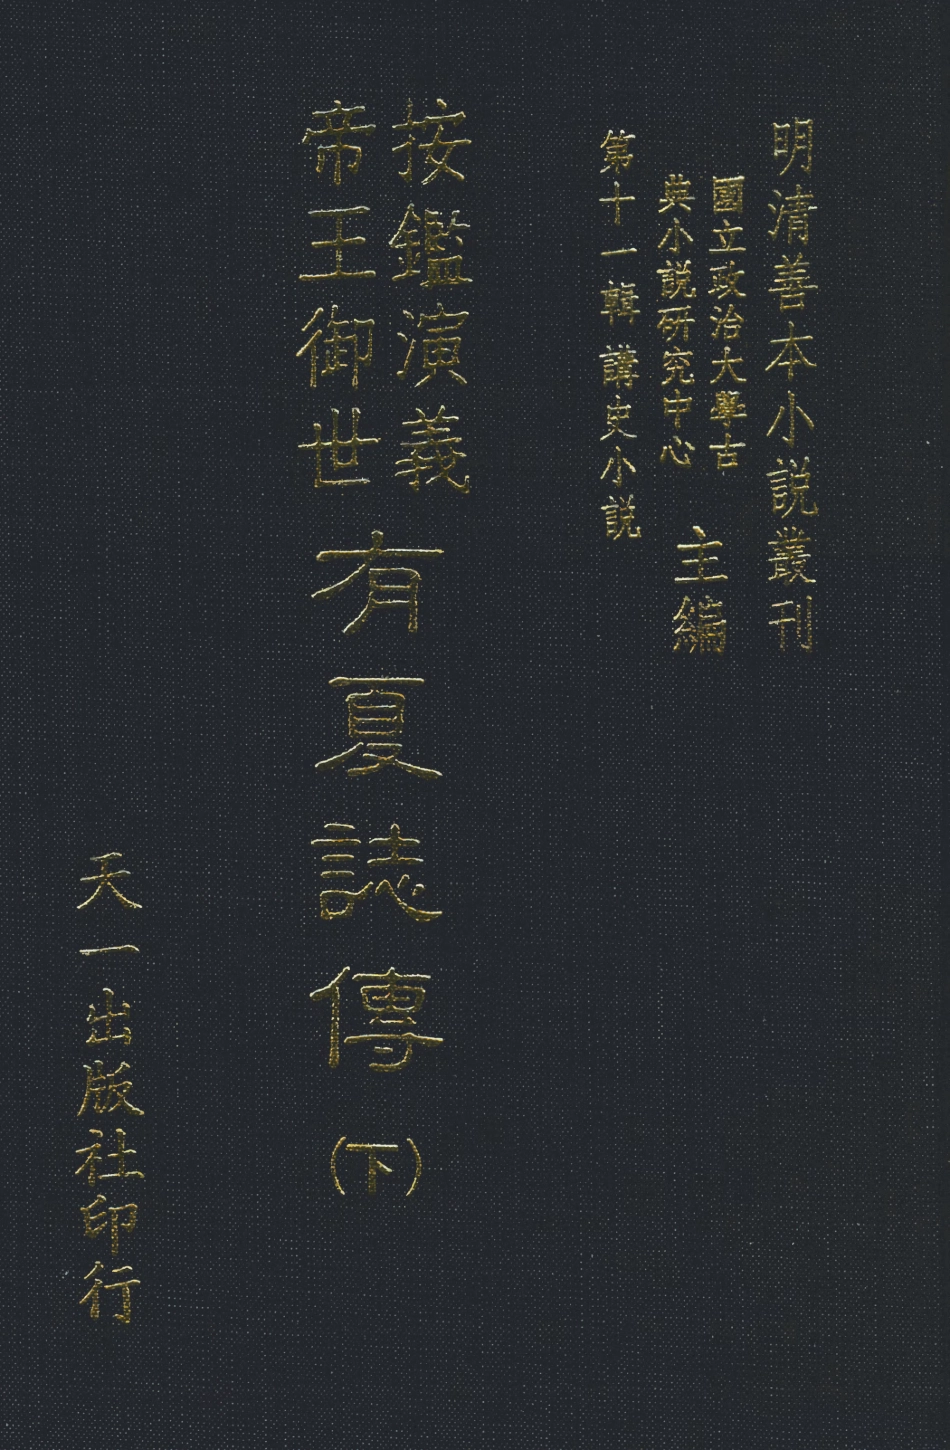 明清善本小説叢刊
國立政治大學古
典小説研究中心
主編
第十一輯 講史小説
按鑑演義
帝王御世
有夏誌傳(下)
天一出版社印行